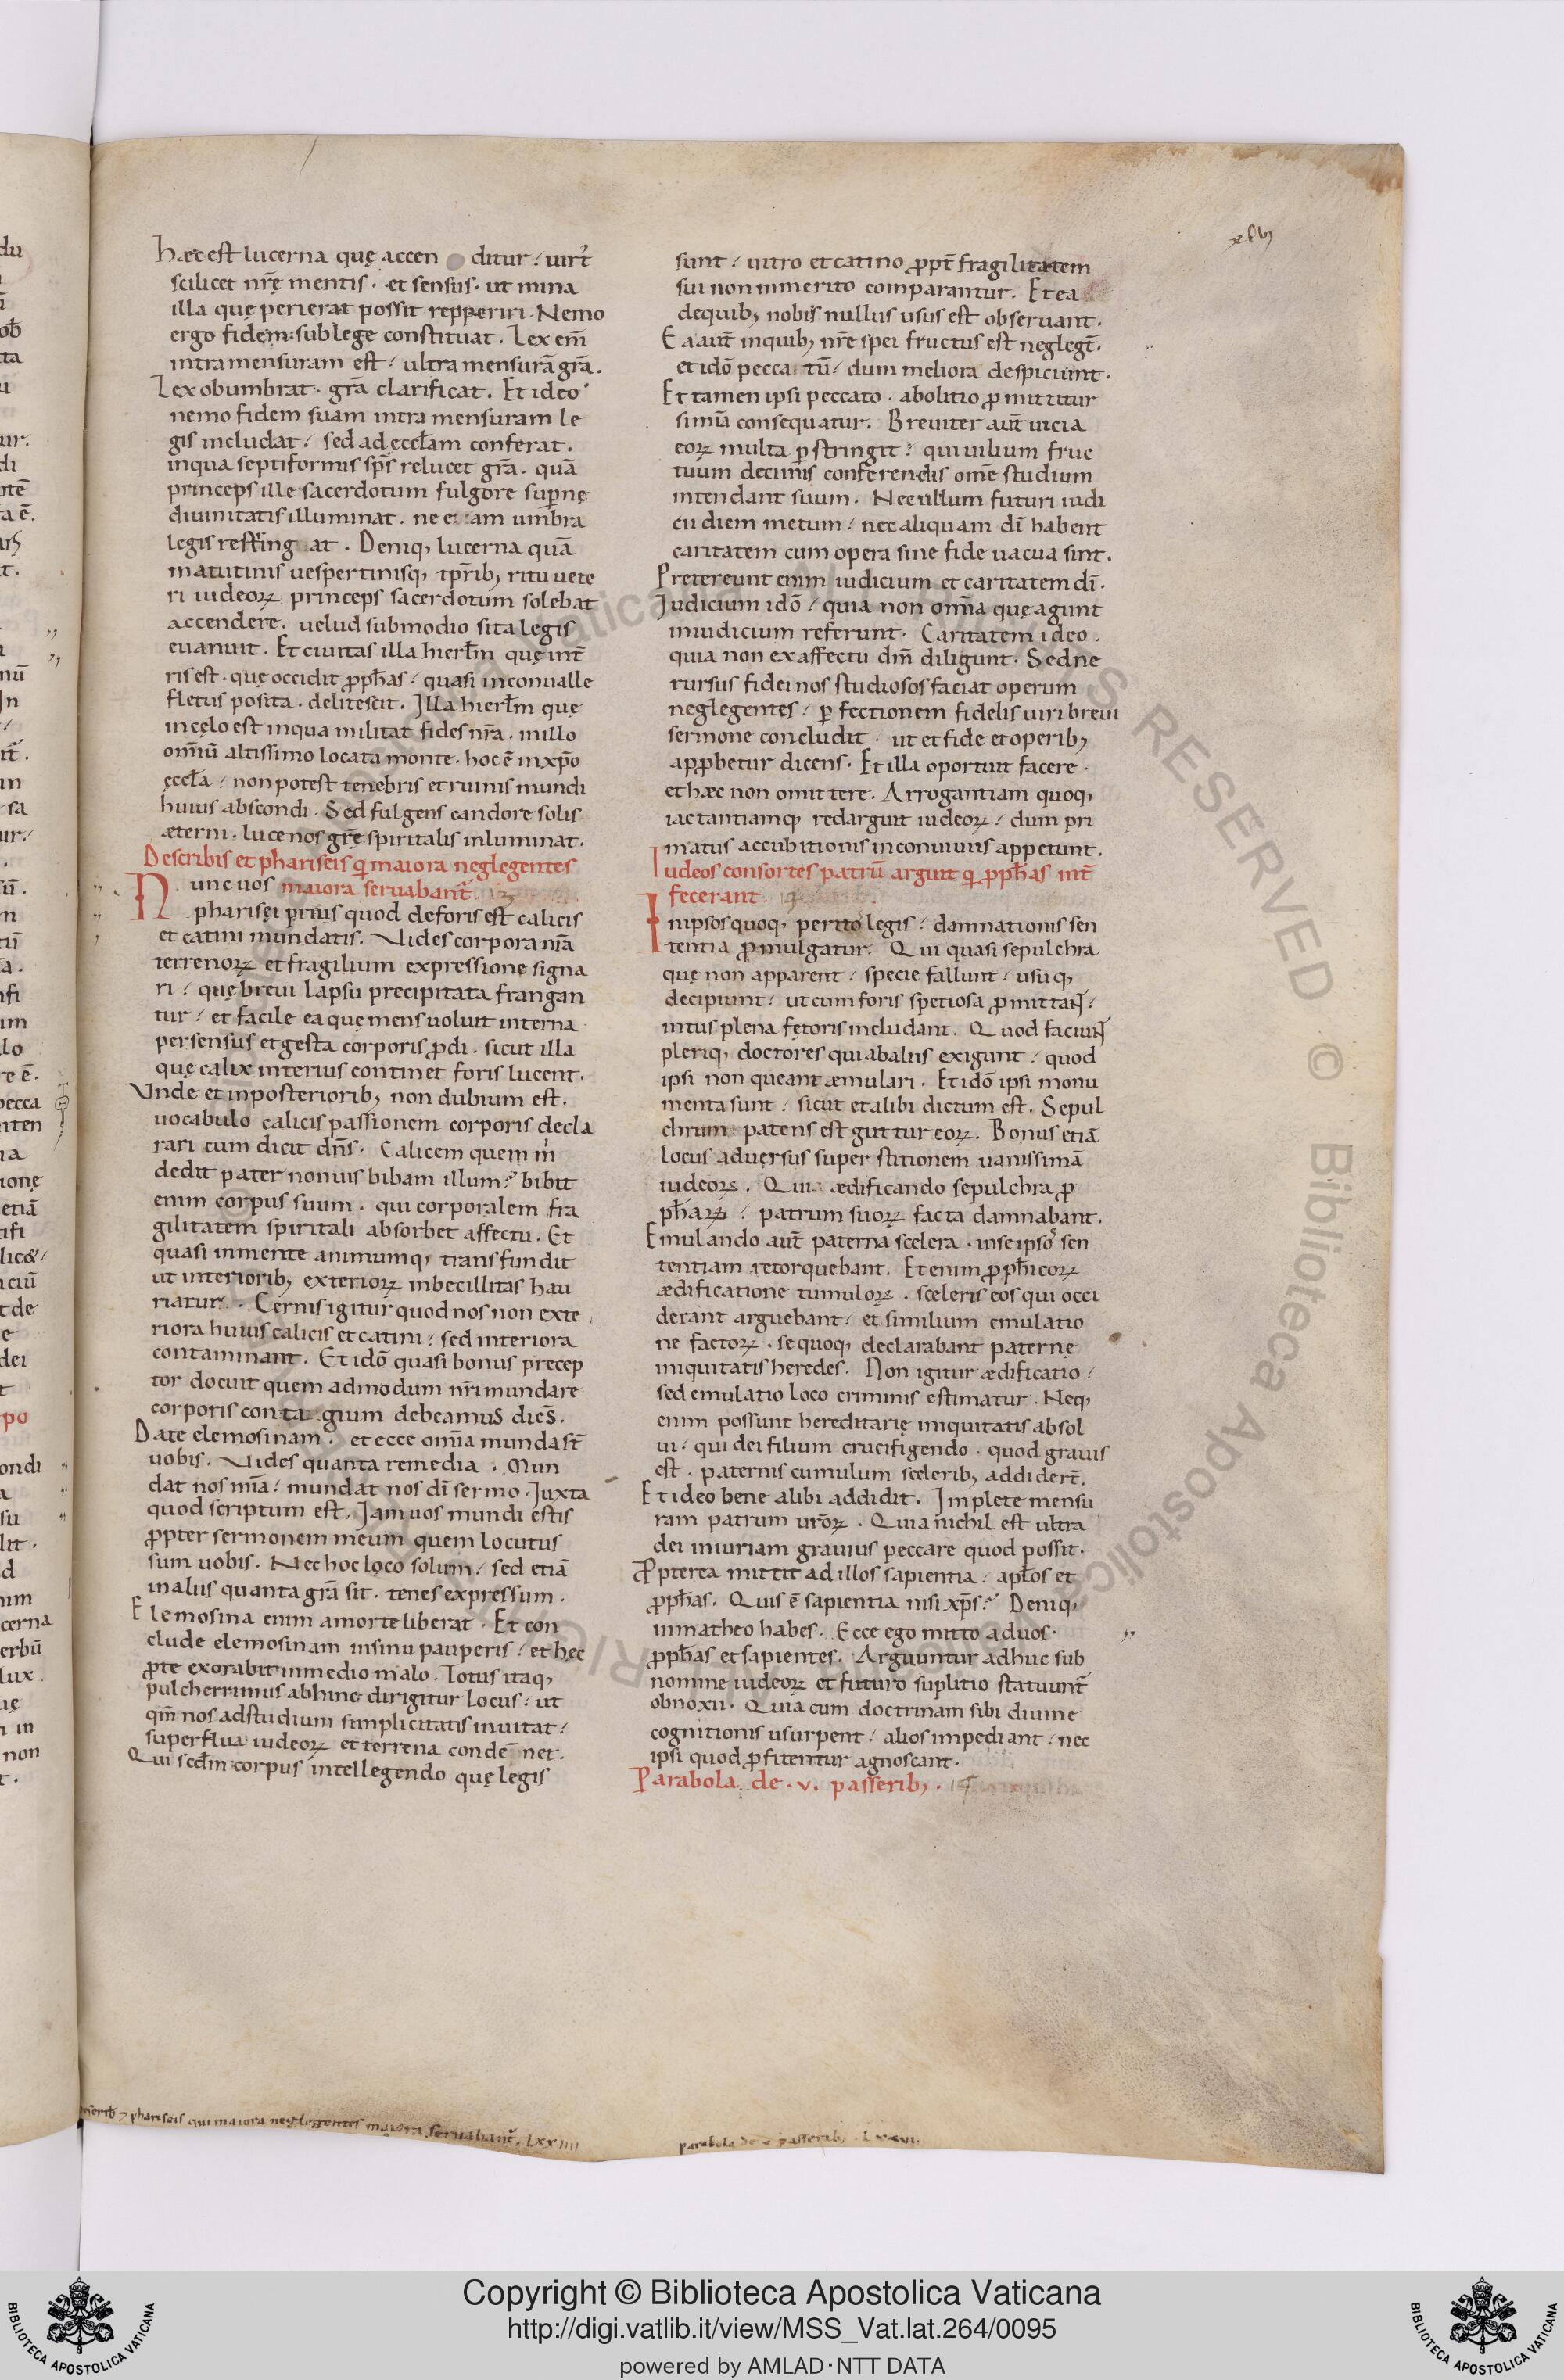 xlvij
Hæc est lucerna quę accen ditur / uirt᷒
scilicet nr̄ę mentis . et sensus . ut mina
illa quę perierat possit repperiri . Nemo
ergo fidem sub lege constituat . Lex eni̅
intra mensuram est / ultra mensurā gr̄a .
Lex obumbrat . gr̄a clarificat . Et ideo
nemo fidem suam intra mensuram le
gis includat / sed ad ęccl̄am conferat .
in qua septiformis sp̄s relucet gr̄a . quā
princeps ille sacerdotum fulgore sup̄nę
diuinitatis illuminat . ne etiam umbra
legis resting at . Deniq; lucerna quā
matutinis uespertinisq; tp̄rib; ritu uete
ri iudeoꝝ princeps sacerdotum solebat
accendere . uelud sub modio sita legis
euanuit . Et ciuitas illa hierl̄m quę int̄
ris est . quę occidit ꝓph̄as / quasi in conualle
fletus posita . delitescit . Illa hierl̄m quę
in cęlo est in qua militat fides nr̄a . in illo
om̄iū altissimo locata monte . hoc ē in xp̄o
ęccl̄a / non potest tenebris et ruinis mundi
huius abscondi . Sed fulgens candore solis
æterni . luce nos gr̄ę spiritalis inluminat .
De scribis et phariseis q̇ maiora neglegentes
maiora seruabant̄
Nunc uos
pharisęi prius quod deforis est calicis
et catini mundatis . Vides corpora nr̄a
terrenoꝝ et fragilium expressione signa
ri / quę breui lapsu precipitata frangan
tur / et facile ea quę mens uoluit interna
per sensus et gesta corporis ꝓdi . sicut illa
quę calix interius continet foris lucent .
Vnde et in posteriorib; non dubium est .
uocabulo calicis passionem corporis decla
rari cum dicit dn̄s . Calicem quem m̍
dedit pater non uis bibam illum ? bibit
enim corpus suum . qui corporalem fra
gilitatem spiritali absorbet affectu . Et
quasi in mente animumq; transfundit
ut interiorib; exterioꝝ inbecillitas hau
riatur . Cernis igitur quod nos non exte
riora huius calicis et catini / sed interiora
contaminant . Et idō quasi bonus precep
tor docuit quem admodum nr̄i mundare
corporis conta gium debeamus dicēs .
Date elemosinam . et ecce om̄ia munda st̄
uobis . Vides quanta remedia . Mun
dat nos mīa / mundat nos dī sermo . Iuxta
quod scriptum est . Iam uos mundi estis
ꝓpter sermonem meum quem locutus
sum uobis . Nec hoc loco solum / sed etiā
in aliis quanta gr̄a sit . tenes expressum .
Elemosina enim a morte liberat . Et con
clude elemosinam in sinu pauperis / et hęc
ꝓ te exorabit in medio malo . Totus itaq;
pulcherrimus abhinc dirigitur locus / ut
qm̄ nos ad studium simplicitatis inuitat /
superflua iudeoꝝ et terrena conde net .
Qui scd̄m corpus intellegendo quę legis
sunt / uitro et catino ꝓpt̄ fragilitatem
sui non inmerito comparantur . Et ea
de quib; nobis nullus usus est obseruant .
Ea aut̄ in quib; nr̄e spei fructus est neglegt̄ .
et idō pecca tū / dum meliora despiciunt .
Et tamen ipsi peccato . abolitio ꝓmittitur
si mīa consequatur . Breuiter aut̄ uicia
eoꝝ multa ꝑstringit / qui uilium fruc
tuum decimis conferendis omē studium
intendant suum . Nec ullum futuri iudi
cii diem metum / nec aliquam dī habent
caritatem cum opera sine fide uacua sint .
Pretereunt enim iudicium et caritatem dī .
Iudicium idō / quia non om̄ia quę agunt
in iudicium referunt . Caritatem ideo .
quia non ex affectu dm̄ diligunt . Sed ne
rursus fidei nos studiosos faciat operum
neglegentes / ꝑfectionem fidelis uiri breui
sermone concludit . ut et fide et operib;
apꝓbetur dicens . Et illa oportuit facere .
et hæc non omittere . Arrogantiam quoq;
iactantiamq; redarguit iudeoꝝ / dum pri
matus accubitionis in conuiuiis appetunt .
Iudeos consortes patrū arguit q̇ ꝓph̄as int̄
fecerant
In ipsos quoq; peritos legis / damnationis sen
tentia ꝓmulgatur . Qui quasi sepulchra
quę non apparent / specie fallunt / usuq;
decipiunt / ut cum foris spetiosa ꝓmittant /
intus plena fętoris includant . Quod faciunt
pleriq; doctores qui ab aliis exigunt / quod
ipsi non queant æmulari . Et idō ipsi monu
menta sunt / sicut et alibi dictum est . Sepul
chrum patens est guttur eoꝝ . Bonus etiā
locus aduersus superstitionem uanissimā
iudeoꝝ . Qui ædificando sepulchra ꝓ
ph̄aꝝ / patrum suoꝝ facta damnabant .
Emulando aut̄ paterna scelera . in se ipsos sen
tentiam retorquebant . Etenim ꝓph̄icoꝝ
ædificatione tumuloꝝ . sceleris eos qui occi
derant arguebant / et similium emulatio
ne factoꝝ . se quoq; declarabant paternę
iniquitatis heredes . Non igitur ædificatio /
sed emulatio loco criminis estimatur . Neq;
enim possunt hereditarię iniquitatis absol
ui / qui dei filium crucifigendo . quod grauis
est . paternis cumulum sceleribꝫ addidert̄ .
Et ideo bene alibi addidit . Implete mensu
ram patrum urōꝝ . Quia nichil est ultra
dei iniuriam grauius peccare quod possit .
Ꝓpterea mittit ad illos sapientia / apl̄os et
ꝓph̄as . Quis ē sapientia nisi xp̄s ? Deniq;
in matheo habes . Ecce ego mitto ad uos .
ꝓph̄as et sapientes . Arguuntur adhuc sub
nomine iudeoꝝ et futuro suplitio statuunt̄
obnoxii . Quia cum doctrinam sibi diuine
cognitionis usurpent / alios impediant / nec
ipsi quod ꝓfitentur agnoscant .
Parabola de . v . passerib; .
pharisęis qui maiora neglegentes maiora seruabant̄ . Lxxiiii
parabola de passerib; . Lxxvi .
Copyright © Biblioteca Apostolica Vaticana
http://digi.vatlib.it/view/MSS_Vat.lat.264/0095
powered by AMLAD·NTT DATA